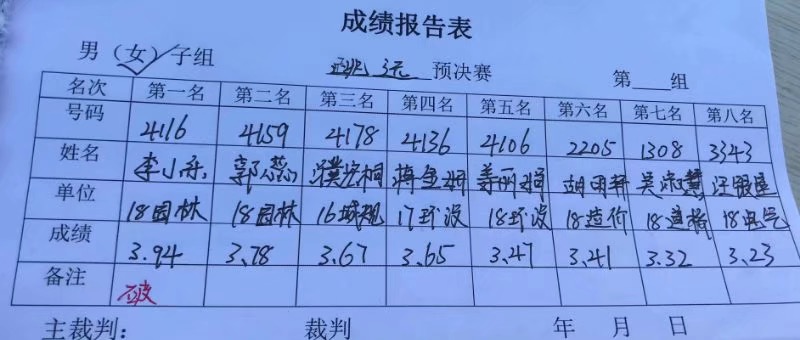 成绩报告表
男（女）子组 跳远 预决赛 第____组
名次 第一名 第二名 第三名 第四名 第五名 第六名 第七名 第八名
号码 4116 4159 4178 4136 4106 2205 1308 3343
姓名 李小 郭蕊 姜丽 胡 吴淑慧 汪银
单位 18园林 18园林 16城规 17环设 18环设 18造价 18道桥 18电气
成绩 3.94 3.78 3.67 3.65 3.47 3.41 3.32 3.23
备注 破
主裁判： 裁判 年 月 日